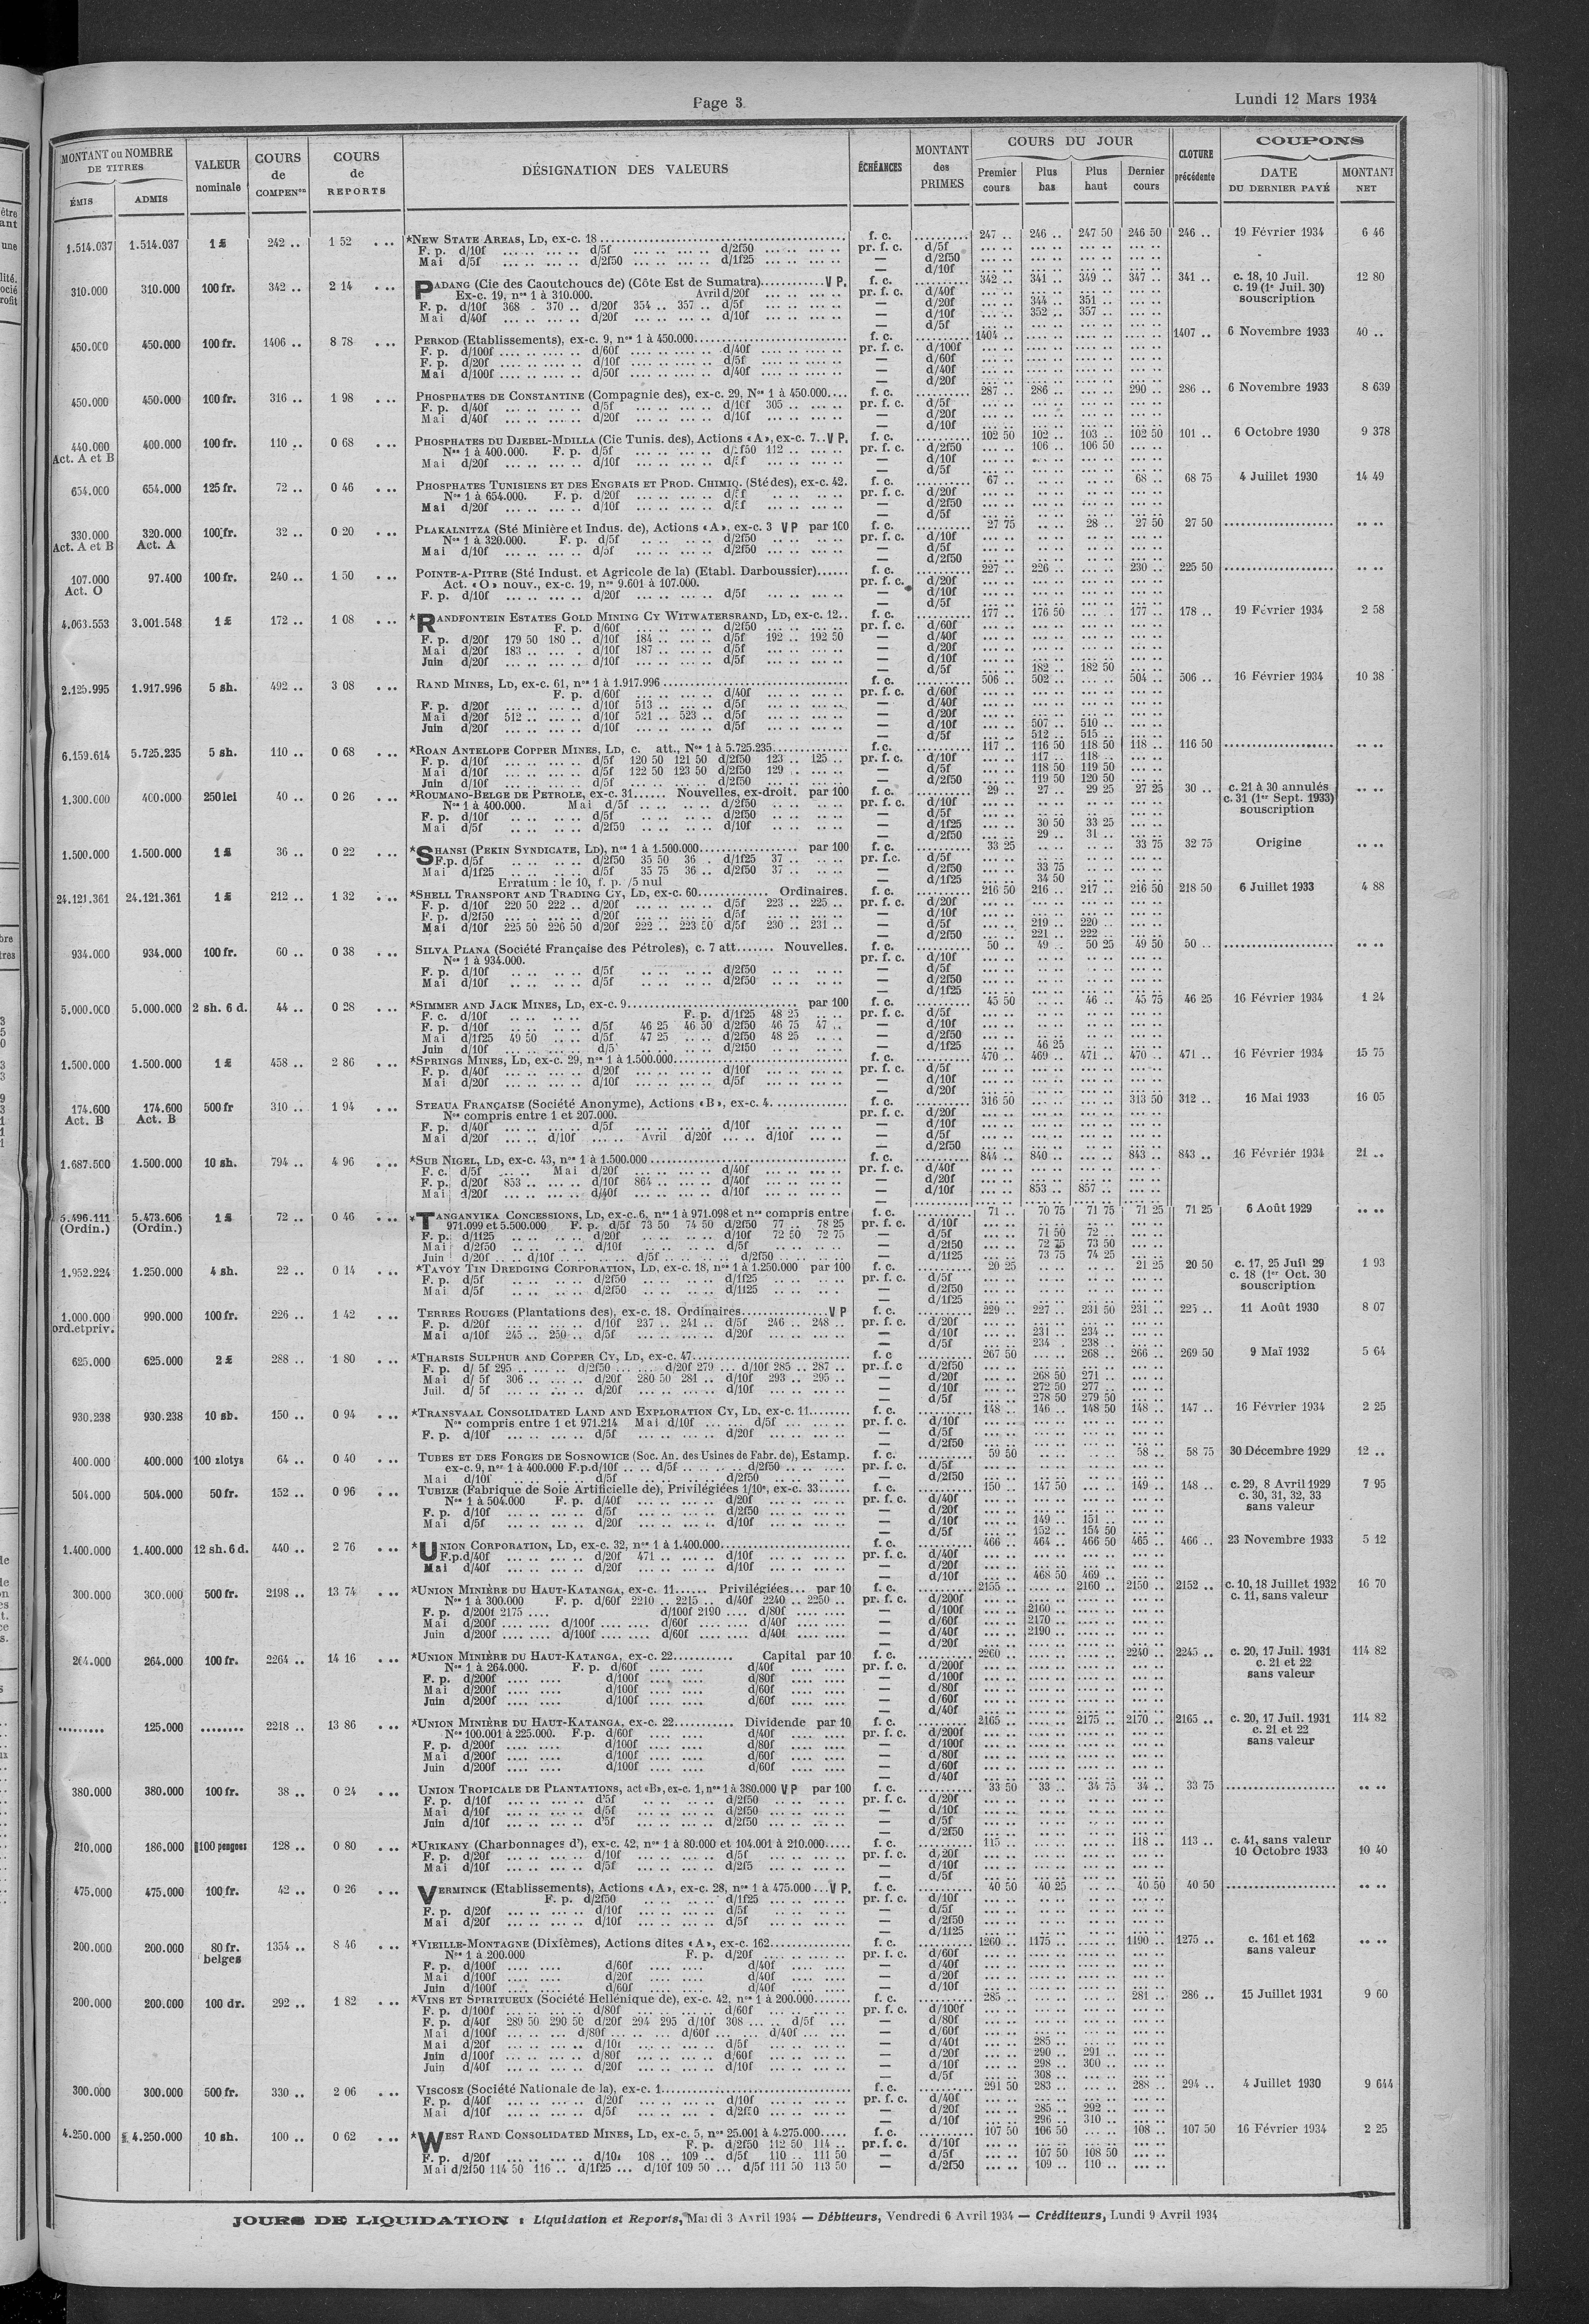 Page 3
Lundi 12 Mars 1934
MONTANT ou NOMBRE DE TITRES
ÉMIS
ADMIS
VALEUR nominale
COURS de COMPENon
COURS de REPORTS
DÉSIGNATION DES VALEURS
ÉCHÉANCES
MONTANT des PRIMES
COURS DU JOUR
Premier cours
Plus bas
Plus haut
Dernier cours
CLOTURE précédente
COUPONS
DATE DU DERNIER PAYÉ
MONTANT NET
1.514.037 1.514.037 1 £ 242 .. 1 52 *NEW STATE AREAS, LD, ex-c. 18 f. c. 247 .. 246 .. 247 50 246 50 246 .. 19 Février 1934 6 46
F. p. d/10f d/5f d/2f50 pr. f. c. d/5f
Mai d/5f d/2f50 d/1f25 — d/2f50
— d/10f
310.000 310.000 100 fr. 342 .. 2 14 PADANG (Cie des Caoutchoucs de) (Côte Est de Sumatra) V P. f. c. 342 .. 341 .. 349 .. 347 .. 341 .. c. 18, 10 Juil. 12 80
Ex-c. 19, nos 1 à 310.000. Avril d/20f pr. f. c. d/40f c. 19 (1er Juil. 30)
F. p. d/10f 368 370 .. d/20f 354 .. 357 .. d/5f — d/20f 344 .. 351 .. souscription
Mai d/40f d/20f d/10f — d/10f 352 .. 357 ..
— d/5f
450.000 450.000 100 fr. 1406 .. 8 78 PERKOD (Etablissements), ex-c. 9, nos 1 à 450.000 f. c. 1404 .. 1407 .. 6 Novembre 1933 40 ..
F. p. d/100f d/60f d/40f pr. f. c. d/100f
F. p. d/20f d/10f d/5f — d/60f
Mai d/100f d/50f d/40f — d/40f
— d/20f
450.000 450.000 100 fr. 316 .. 1 98 PHOSPHATES DE CONSTANTINE (Compagnie des), ex-c. 29, Nos 1 à 450.000 f. c. 287 .. 286 .. 290 .. 286 .. 6 Novembre 1933 8 639
F. p. d/40f d/5f d/10f 305 .. pr. f. c. d/5f
Mai d/40f d/20f d/10f — d/20f
— d/10f
440.000 400.000 100 fr. 110 .. 0 68 PHOSPHATES DU DJEBEL-MDILLA (Cie Tunis. des), Actions «A», ex-c. 7..V P. f. c. 102 50 102 .. 103 .. 102 50 101 .. 6 Octobre 1930 9 378
Act. A et B Nos 1 à 400.000. F. p. d/5f d/2f50 112 .. pr. f. c. d/2f50 106 .. 106 50
Mai d/20f d/10f d/5f — d/10f
— d/5f
654.000 654.000 125 fr. 72 .. 0 46 PHOSPHATES TUNISIENS ET DES ENGRAIS ET PROD. CHIMIQ. (Sté des), ex-c. 42. f. c. 67 .. 68 .. 68 75 4 Juillet 1930 14 49
Nos 1 à 654.000. F. p. d/20f d/5f pr. f. c. d/20f
Mai d/20f d/10f d/5f — d/2f50
— d/5f
330.000 320.000 100 fr. 32 .. 0 20 PLAKALNITZA (Sté Minière et Indus. de), Actions «A», ex-c. 3 V P par 100 f. c. 27 75 28 .. 27 50 27 50
Act. A et B Act. A Nos 1 à 320.000. F. p. d/5f d/2f50 pr. f. c. d/10f
Mai d/10f d/5f d/2f50 — d/5f
— d/2f50
107.000 97.400 100 fr. 240 .. 1 50 POINTE-A-PITRE (Sté Indust. et Agricole de la) (Etabl. Darboussier) f. c. 227 .. 226 .. 230 .. 225 50
Act. O Act. «O» nouv., ex-c. 19, nos 9.601 à 107.000. pr. f. c. d/20f
F. p. d/10f d/20f d/5f — d/10f
— d/5f
4.063.553 3.001.548 1 £ 172 .. 1 08 *RANDFONTEIN ESTATES GOLD MINING CY WITWATERSRAND, LD, ex-c. 12.. f. c. 177 .. 176 50 177 .. 178 .. 19 Février 1934 2 58
F. p. d/60f d/2f50 pr. f. c. d/60f
F. p. d/20f 179 50 180 .. d/10f 184 .. d/5f 192 .. 192 50 — d/40f
Mai d/20f 183 .. d/10f 187 .. d/5f — d/20f
Juin d/20f d/10f d/5f — d/10f
— d/5f 182 .. 182 50
2.125.995 1.917.996 5 sh. 492 .. 3 08 RAND MINES, LD, ex-c. 61, nos 1 à 1.917.996 f. c. 506 .. 502 .. 504 .. 506 .. 16 Février 1934 10 38
F. p. d/60f d/40f pr. f. c. d/60f
F. p. d/20f d/10f 513 .. d/5f — d/40f
Mai d/20f 512 .. d/10f 521 .. 523 .. d/5f — d/20f
Juin d/20f d/10f d/5f — d/10f 507 .. 510 ..
— d/5f 512 .. 515 ..
6.159.614 5.725.235 5 sh. 110 .. 0 68 *ROAN ANTELOPE COPPER MINES, LD, c. att., Nos 1 à 5.725.235 f. c. 117 .. 116 50 118 50 118 .. 116 50
F. p. d/10f d/5f 120 50 121 50 d/2f50 123 .. 125 .. pr. f. c. d/10f 117 .. 118 ..
Mai d/10f d/5f 122 50 123 50 d/2f50 129 .. — d/5f 118 50 119 50
Juin d/10f d/5f d/2f50 — d/2f50 119 50 120 50
1.300.000 400.000 250 lei 40 .. 0 26 *ROUMANO-BELGE DE PETROLE, ex-c. 31 Nouvelles, ex-droit. par 100 f. c. 29 .. 27 .. 29 25 27 25 30 .. c. 21 à 30 annulés
Nos 1 à 400.000. Mai d/5f d/2f50 pr. f. c. d/10f c. 31 (1er Sept. 1933)
F. p. d/10f d/5f d/2f50 — d/5f souscription
Mai d/5f d/2f50 d/10f — d/1f25 30 50 33 25
— d/2f50 29 .. 31 ..
1.500.000 1.500.000 1 £ 36 .. 0 22 *SHANSI (PEKIN SYNDICATE, LD), nos 1 à 1.500.000 par 100 f. c. 33 25 33 75 32 75 Origine
F.p. d/5f d/2f50 35 50 36 .. d/1f25 37 .. pr. f.c. d/5f
Mai d/1f25 d/5f 35 75 36 .. d/2f50 37 .. — d/2f50 33 75
Erratum : le 10, f. p. /5 nul — d/1f25 34 50
24.121.361 24.121.361 1 £ 212 .. 1 32 *SHELL TRANSPORT AND TRADING CY, LD, ex-c. 60 Ordinaires. f. c. 216 50 216 .. 217 .. 216 50 218 50 6 Juillet 1933 4 88
F. p. d/10f 220 50 222 .. d/20f d/5f 223 .. 225 .. pr. f. c. d/20f
F. p. d/2f50 d/20f d/5f — d/10f
Mai d/10f 225 50 226 50 d/20f 222 .. 223 50 d/5f 230 .. 231 .. — d/5f 219 .. 220 ..
— d/2f50 221 .. 222 ..
934.000 934.000 100 fr. 60 .. 0 38 SILVA PLANA (Société Française des Pétroles), c. 7 att. Nouvelles. f. c. 50 .. 49 .. 50 25 49 50 50 ..
Nos 1 à 934.000. pr. f. c. d/10f
F. p. d/10f d/5f d/2f50 — d/5f
Mai d/10f d/5f d/2f50 — d/2f50
— d/1f25
5.000.000 5.000.000 2 sh. 6 d. 44 .. 0 28 *SIMMER AND JACK MINES, LD, ex-c. 9 par 100 f. c. 45 50 46 .. 45 75 46 25 16 Février 1934 1 24
F. c. d/10f F. p. d/1f25 48 25 pr. f. c. d/5f
F. p. d/10f d/5f 46 25 46 50 d/2f50 46 75 47 .. — d/10f
Mai d/1f25 49 50 d/5f 47 25 d/2f50 48 25 — d/2f50
Juin d/10f d/5 d/2f50 — d/1f25 46 25
1.500.000 1.500.000 1 £ 458 .. 2 86 *SPRINGS MINES, LD, ex-c. 29, nos 1 à 1.500.000 f. c. 470 .. 469 .. 471 .. 470 .. 471 .. 16 Février 1934 15 75
F. p. d/40f d/20f d/10f pr. f. c. d/5f
Mai d/20f d/10f d/5f — d/10f
— d/20f
174.600 174.600 500 fr 310 .. 1 94 STEAUA FRANÇAISE (Société Anonyme), Actions «B», ex-c. 4. f. c. 316 50 313 50 312 .. 16 Mai 1933 16 05
Act. B Act. B Nos compris entre 1 et 207.000. pr. f. c. d/20f
F. p. d/40f d/5f d/10f — d/10f
Mai d/20f d/10f Avril d/20f d/10f — d/5f
— d/2f50
1.687.500 1.500.000 10 sh. 794 .. 4 96 *SUB NIGEL, LD, ex-c. 43, nos 1 à 1.500.000 f. c. 844 .. 840 .. 843 .. 843 .. 16 Février 1934 21 ..
F. c. d/5f Mai d/20f d/40f pr. f. c. d/40f
F. p. d/20f 853 .. d/10f 864 .. d/40f — d/20f
Mai d/20f d/40f d/10f — d/10f 853 .. 857 ..
5.496.111 5.473.606 1 £ 72 .. 0 46 *TANGANYIKA CONCESSIONS, LD, ex-c. 6, nos 1 à 971.098 et nos compris entre f. c. 71 .. 70 75 71 75 71 25 71 25 6 Août 1929
(Ordin.) (Ordin.) 971.099 et 5.500.000 F. p. d/5f 73 50 74 50 d/2f50 77 .. 78 25 pr. f. c. d/10f
F. p. d/1f25 d/20f d/10f 72 50 72 75 — d/5f 71 50 72 ..
Mai d/2f50 d/10f d/5f — d/2f50 72 75 73 50
Juin d/20f d/10f d/5f d/2f50 — d/1f25 73 75 74 25
1.952.224 1.250.000 4 sh. 22 .. 0 14 *TAVOY TIN DREDGING CORPORATION, LD, ex-c. 18, nos 1 à 1.250.000 par 100 f. c. 20 25 21 25 20 50 c. 17, 25 Juil 29 1 93
F. p. d/5f d/2f50 d/1f25 pr. f. c. d/5f c. 18 (1er Oct. 30
Mai d/5f d/2f50 d/1f25 — d/2f50 souscription
— d/1f25
1.000.000 990.000 100 fr. 226 .. 1 42 TERRES ROUGES (Plantations des), ex-c. 18. Ordinaires V P f. c. 229 .. 227 .. 231 50 231 .. 225 .. 11 Août 1930 8 07
ord.et priv. F. p. d/20f d/10f 237 .. 241 .. d/5f 246 .. 248 .. pr. f. c. d/20f
Mai d/10f 245 .. 250 .. d/5f d/20f — d/10f 231 .. 234 ..
— d/5f 234 .. 238 ..
625.000 625.000 2 £ 288 .. 1 80 *THARSIS SULPHUR AND COPPER CY, LD, ex-c. 47 f. c 267 50 268 .. 266 .. 269 50 9 Maï 1932 5 64
F. p. d/ 5f 295 .. d/2f50 d/20f 279 d/10f 285 .. 287 .. pr. f. c d/2f50
Mai d/ 5f 306 .. d/20f 280 50 281 .. d/10f 293 .. 295 .. — d/20f 268 50 271 ..
Juil. d/ 5f d/20f d/10f — d/10f 272 50 277 ..
— d/5f 278 50 279 50
930.238 930.238 10 sh. 150 .. 0 94 *TRANSVAAL CONSOLIDATED LAND AND EXPLORATION CY, LD, ex-c. 11 f. c. 148 .. 146 .. 148 50 148 .. 147 .. 16 Février 1934 2 25
Nos compris entre 1 et 971.214 Mai d/10f d/5f pr. f. c. d/10f
F. p. d/10f d/5f d/20f — d/5f
— d/2f50
400.000 400.000 100 zlotys 64 .. 0 40 TUBES ET DES FORGES DE SOSNOWICE (Soc. An. des Usines de Fabr. de), Estamp. f. c. 59 50 58 .. 58 75 30 Décembre 1929 12 ..
ex-c. 9, nos 1 à 400.000 F.p. d/10f d/5f d/2f50 pr. f. c. d/5f
Mai d/10f d/5f d/2f50 — d/2f50
504.000 504.000 50 fr. 152 .. 0 96 TUBIZE (Fabrique de Soie Artificielle de), Privilégiées 1/10e, ex-c. 33 f. c. 150 .. 147 50 149 .. 148 .. c. 29, 8 Avril 1929 7 95
Nos 1 à 504.000 F. p. d/40f d/20f pr. f. c. d/40f c. 30, 31, 32, 33
F. p. d/10f d/5f d/2f50 — d/20f sans valeur
Mai d/5f d/20f d/10f — d/10f 149 .. 151 ..
— d/5f 152 .. 154 50
1.400.000 1.400.000 12 sh. 6 d. 440 .. 2 76 *UNION CORPORATION, LD, ex-c. 32, nos 1 à 1.400.000 f. c. 466 .. 464 .. 466 50 465 .. 466 .. 23 Novembre 1933 5 12
F.p. d/40f d/20f 471 .. d/10f pr. f. c. d/40f
Mai d/40f d/20f d/10f — d/20f
— d/10f 468 50 469 ..
300.000 300.000 500 fr. 2198 .. 13 74 *UNION MINIÈRE DU HAUT-KATANGA, ex-c. 11 Privilégiées par 10 f. c. 2155 .. 2160 .. 2150 .. 2152 .. c. 10, 18 Juillet 1932 16 70
Nos 1 à 300.000 F. p. d/60f 2210 .. 2215 .. d/40f 2240 .. 2250 .. pr. f. c. d/200f c. 11, sans valeur
F. p. d/200f 2175 d/100f 2190 d/80f — d/100f 2160 ..
Mai d/200f d/100f d/60f d/40f — d/60f 2170 ..
Juin d/200f d/100f d/60f d/40f — d/40f 2190 ..
— d/20f
264.000 264.000 100 fr. 2264 .. 14 16 *UNION MINIÈRE DU HAUT-KATANGA, ex-c. 22 Capital par 10 f. c. 2260 .. 2240 .. 2245 .. c. 20, 17 Juil. 1931 114 82
Nos 1 à 264.000. F. p. d/60f d/40f pr. f. c. d/200f c. 21 et 22
F. p. d/200f d/100f d/80f — d/100f sans valeur
Mai d/200f d/100f d/60f — d/80f
Juin d/200f d/100f d/60f — d/60f
— d/40f
125.000 2218 .. 13 86 *UNION MINIÈRE DU HAUT-KATANGA, ex-c. 22 Dividende par 10 f. c. 2165 .. 2175 .. 2170 .. 2165 .. c. 20, 17 Juil. 1931 114 82
Nos 100.001 à 225.000. F.p. d/60f d/40f pr. f. c. d/200f c. 21 et 22
F. p. d/200f d/100f d/80f — d/100f sans valeur
Mai d/200f d/100f d/60f — d/80f
Juin d/200f d/100f d/60f — d/60f
— d/40f
380.000 380.000 100 fr. 38 .. 0 24 UNION TROPICALE DE PLANTATIONS, act «B», ex-c. 1, nos 1 à 380.000 V P par 100 f. c. 33 50 33 .. 34 75 34 .. 33 75
F. p. d/10f d'5f d/2f50 pr. f. c. d/20f
Mai d/10f d/5f d/2f50 — d/10f
Juin d/10f d'5f d/2f50 — d/5f
— d/2f50
210.000 186.000 100 pengoes 128 .. 0 80 *URIKANY (Charbonnages d'), ex-c. 42, nos 1 à 80.000 et 104.001 à 210.000 f. c. 115 .. 118 .. 113 .. c. 41, sans valeur
F. p. d/20f d/10f d/5f pr. f. c. d/20f 10 Octobre 1933 10 40
Mai d/10f d/5f d/2f5 — d/10f
— d/5f
475.000 475.000 100 fr. 42 .. 0 26 VERMINCK (Etablissements), Actions «A», ex-c. 28, nos 1 à 475.000 V P. f. c. 40 50 40 25 40 50 40 50
F. p. d/2f50 d/1f25 pr. f. c. d/10f
F. p. d/20f d/10f d/5f — d/5f
Mai d/20f d/10f d/5f — d/2f50
— d/1f25
200.000 200.000 80 fr. belges 1354 .. 8 46 *VIEILLE-MONTAGNE (Dixièmes), Actions dites «A», ex-c. 162 f. c. 1260 .. 1175 .. 1190 .. 1275 .. c. 161 et 162
Nos 1 à 200.000 F. p. d/20f pr. f. c. d/60f sans valeur
F. p. d/100f d/60f d/40f — d/40f
Mai d/100f d/20f d/40f — d/20f
Juin d/100f d/60f d/40f — d/10f
200.000 200.000 100 dr. 292 .. 1 82 *VINS ET SPIRITUEUX (Société Hellénique de), ex-c. 42, nos 1 à 200.000 f. c. 285 .. 281 .. 286 .. 15 Juillet 1931 9 60
F. p. d/100f d/80f d/60f pr. f. c. d/100f
F. p. d/40f 289 50 290 50 d/20f 294 295 d/10f 308 d/5f — d/80f
Mai d/100f d/80f d/60f d/40f — d/60f
Mai d/20f d/10f d/5f — d/40f 285 ..
Juin d/100f d/80f d/60f — d/20f 290 .. 291 ..
Juin d/40f d/20f d/10f — d/10f 298 .. 300 ..
— d/5f 308 ..
300.000 300.000 500 fr. 330 .. 2 06 VISCOSE (Société Nationale de la), ex-c. 1 f. c. 291 50 283 .. 288 .. 294 .. 4 Juillet 1930 9 644
F. p. d/40f d/20f d/10f pr. f. c. d/40f
Mai d/10f d/5f d/2f50 — d/20f 285 .. 292 ..
— d/10f 296 .. 310 ..
4.250.000 4.250.000 10 sh. 100 .. 0 62 *WEST RAND CONSOLIDATED MINES, LD, ex-c. 5, nos 25.001 à 4.275.000 f. c. 107 50 106 50 108 .. 107 50 16 Février 1934 2 25
F. p. d/2f50 112 50 114 .. pr. f. c. d/10f
F. p. d/20f d/10f 108 .. 109 .. d/5f 110 .. 111 50 — d/5f 107 50 108 50
Mai d/2f50 114 50 116 .. d/1f25 d/10f 109 50 d/5f 111 50 113 50 — d/2f50 109 .. 110 ..
JOURS DE LIQUIDATION : Liquidation et Reports, Mardi 3 Avril 1934 — Débiteurs, Vendredi 6 Avril 1934 — Créditeurs, Lundi 9 Avril 1934